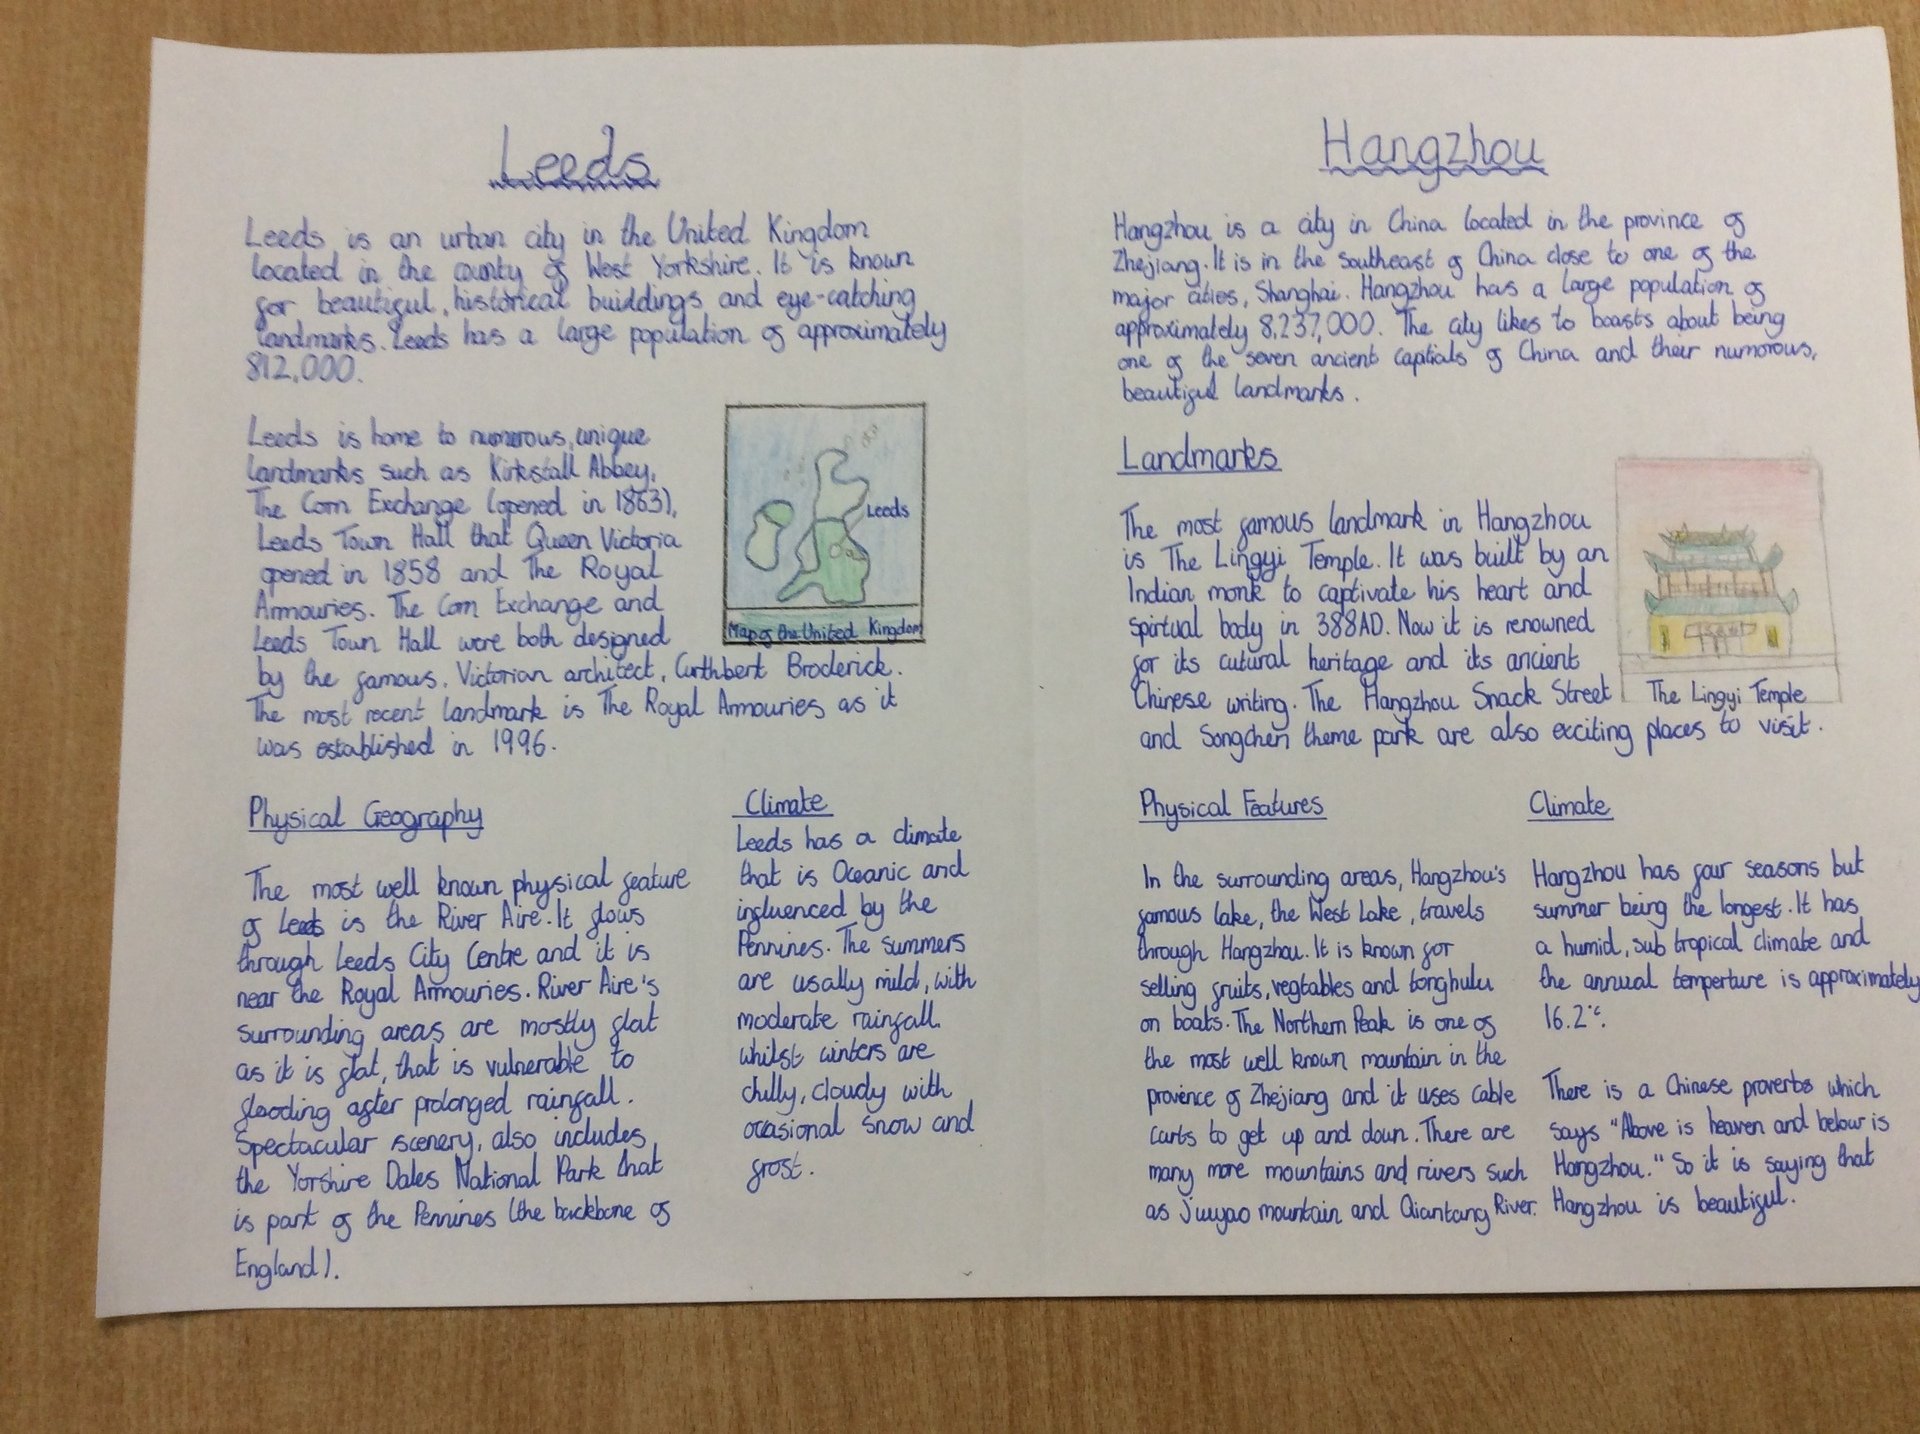 Leeds
Leeds is an urban city in the United Kingdom
located in the county of West Yorkshire. It is known
for beautiful, historical buildings and eye-catching
landmarks. Leeds has a large population of approximately
812,000.
Leeds is home to numerous, unique
landmarks such as Kirkstall Abbey,
The Corn Exchange (opened in 1863),
Leeds Town Hall that Queen Victoria
opened in 1858 and The Royal
Armouries. The Corn Exchange and
Leeds Town Hall were both designed
by the famous, Victorian architect, Curthbert Broderick.
The most recent landmark is The Royal Armouries as it
was established in 1996.
Leeds
Map of the United Kingdom
Physical Geography
The most well known physical feature
of Leeds is the River Aire. It flows
through Leeds City Centre and it is
near the Royal Armouries. River Aire's
surrounding areas are mostly flat
as it is flat, that is vulnerable to
flooding after prolonged rainfall.
Spectacular scenery, also includes
the Yorshire Dales National Park that
is part of the Pennines (the backbone of
England).
Climate
Leeds has a climate
that is Oceanic and
influenced by the
Pennines. The summers
are usally mild, with
moderate rainfall.
whilst winters are
chilly, cloudy with
occasional snow and
frost.
Hangzhou
Hangzhou is a city in China located in the province of
Zhejiang. It is in the southeast of China close to one of the
major cities, Shanghai. Hangzhou has a large population of
approximately 8,237,000. The city likes to boasts about being
one of the seven ancient captials of China and their numorous,
beautiful landmarks.
Landmarks
The most famous landmark in Hangzhou
is The Lingyi Temple. It was built by an
Indian monk to captivate his heart and
spirtual body in 388AD. Now it is renowned
for its cutural heritage and its ancient
Chinese writing. The Hangzhou Snack Street
and Songchen theme park are also exciting places to visit.
The Lingyi Temple
Physical Features
In the surrounding areas, Hangzhou's
famous lake, the West Lake, travels
through Hangzhou. It is known for
selling fruits, vegtables and tonghulu
on boats. The Northern Peak is one of
the most well known mountain in the
provence of Zhejiang and it uses cable
carts to get up and down. There are
many more mountains and rivers such
as mountain and Qiantang River.
Climate
Hangzhou has four seasons but
summer being the longest. It has
a humid, sub tropical climate and
the annual temperture is approximately
16.2°c.
There is a Chinese proverbs which
says "Above is heaven and below is
Hangzhou." So it is saying that
Hangzhou is beautiful.